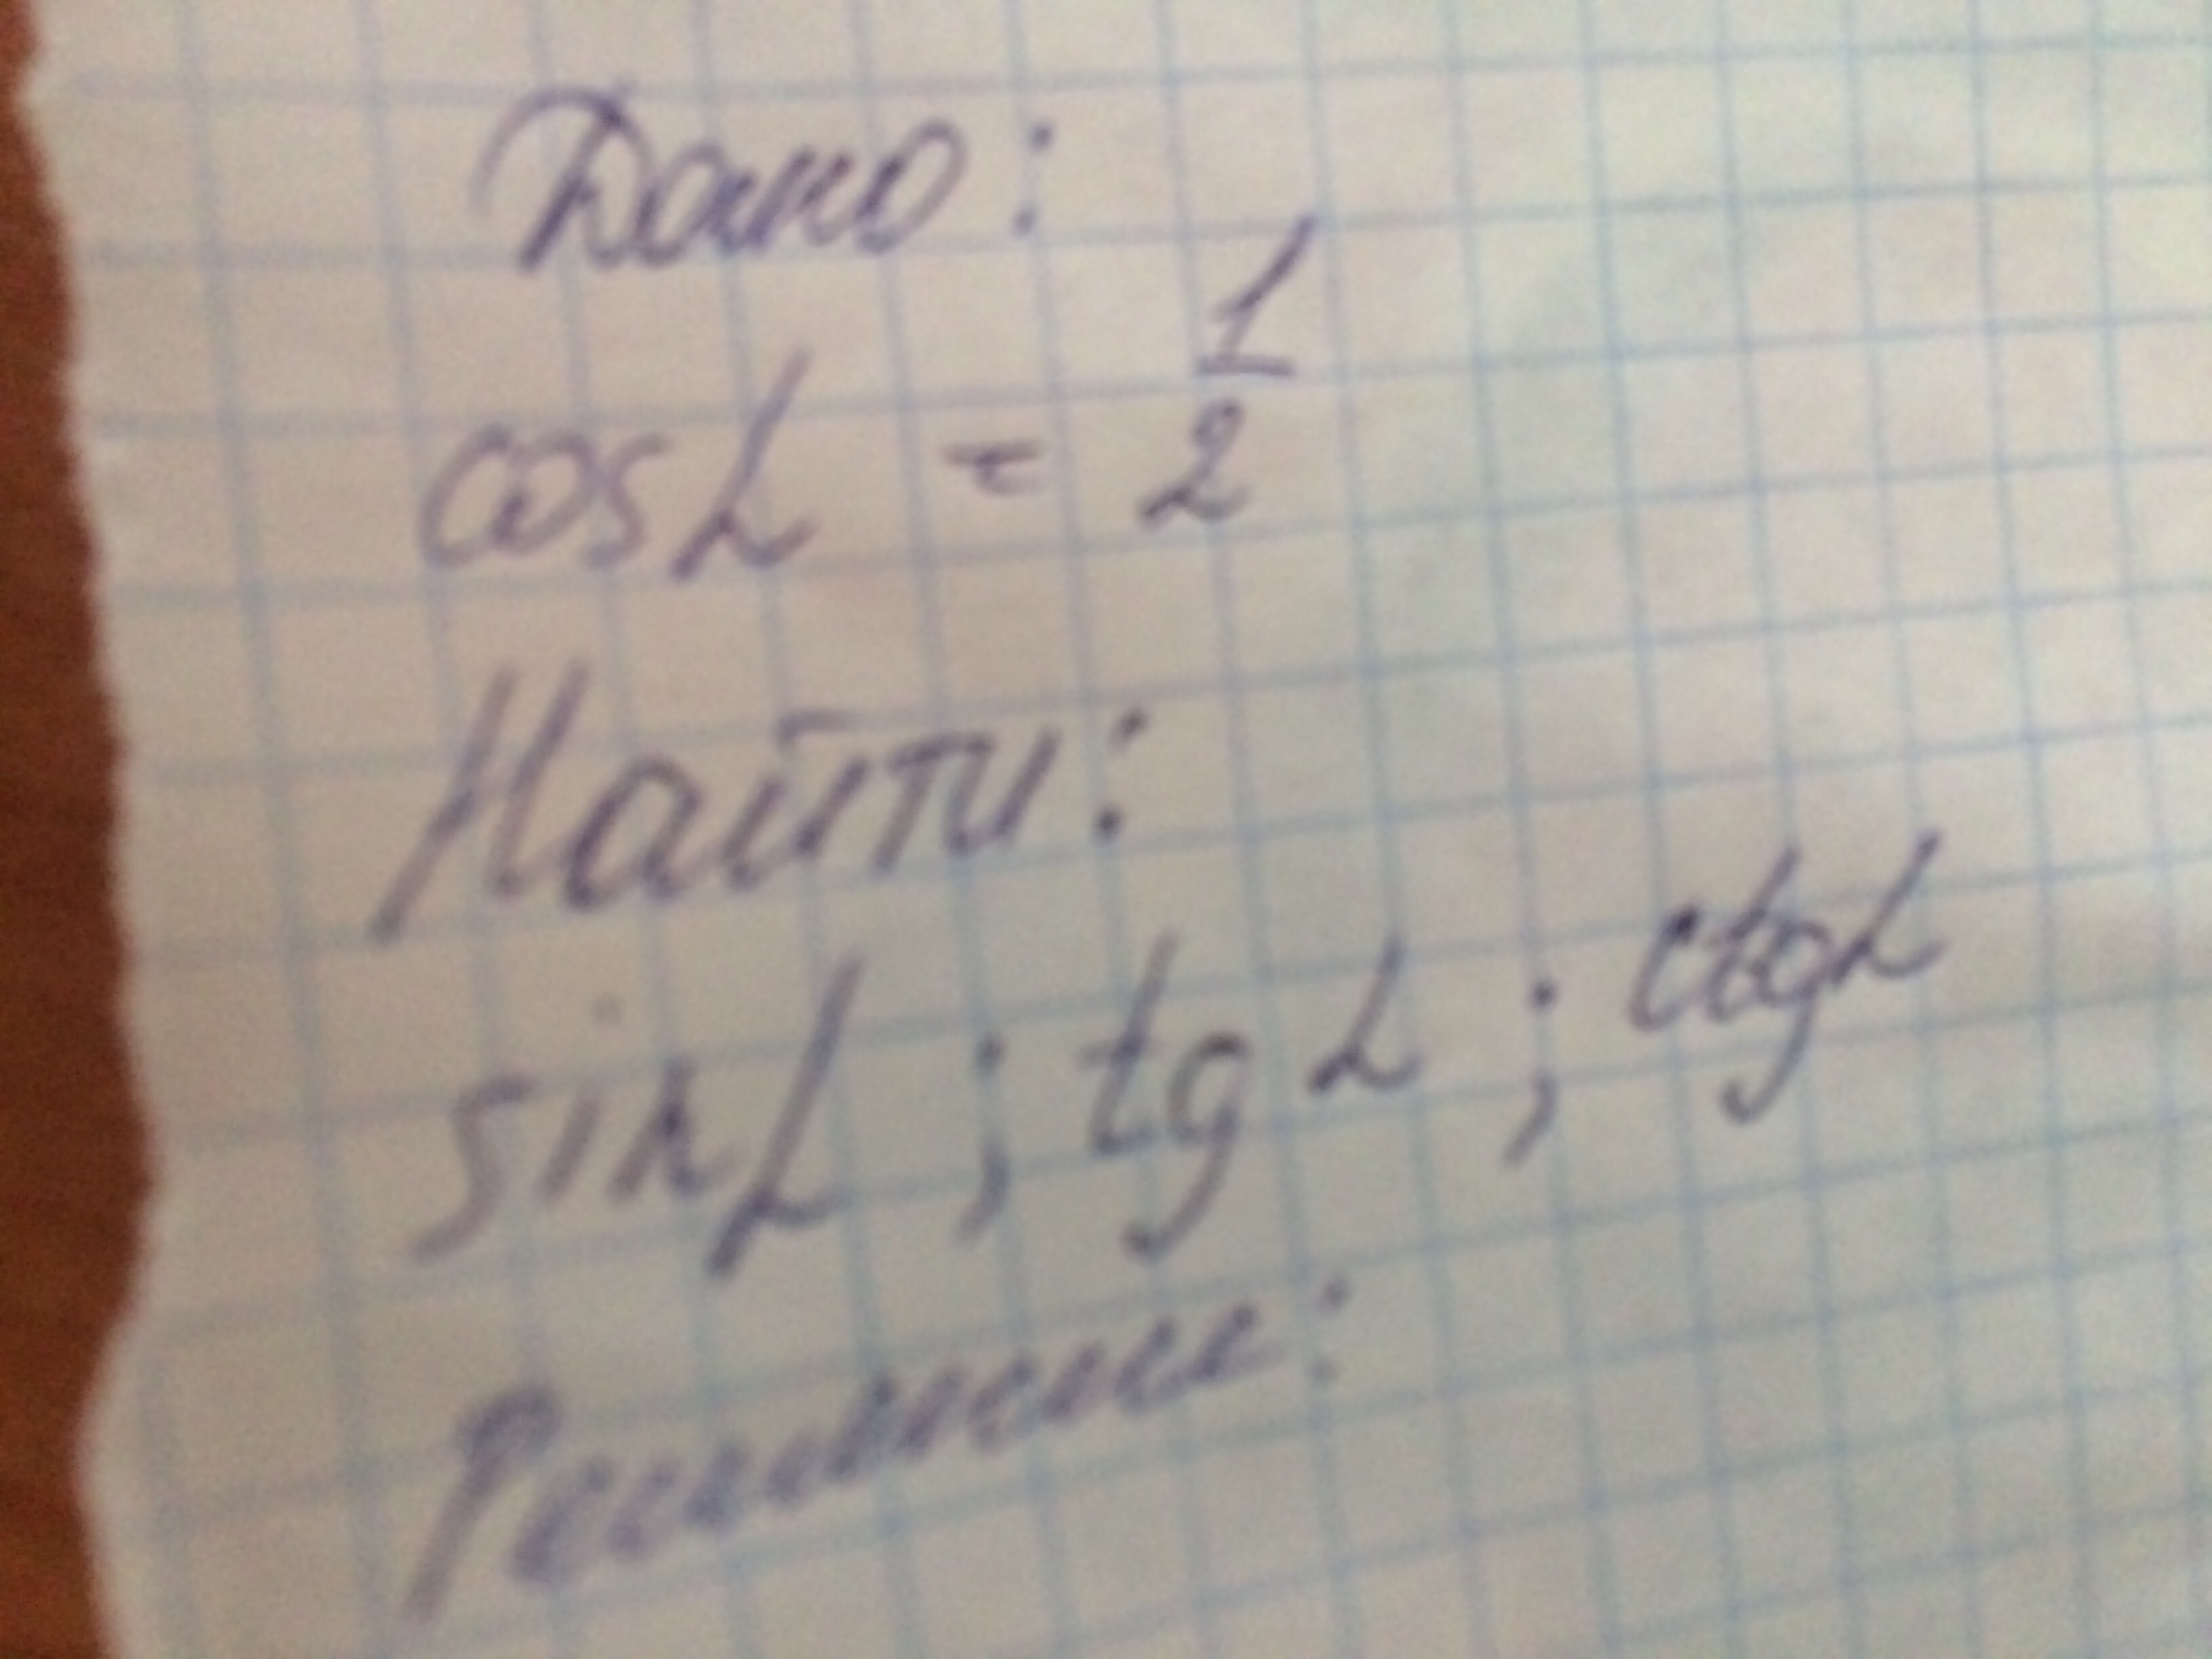 Дано:
cosα = 1/2
Найти:
sinα ; tgα ; ctgα
Решение: